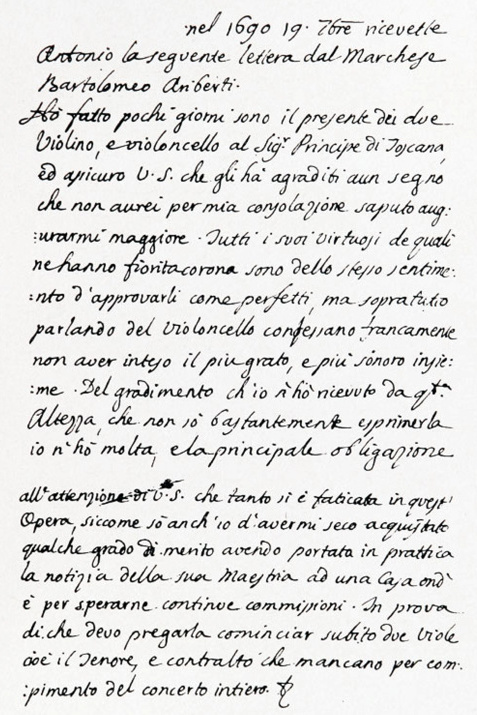 nel 1690 19. 7bre ricevette
Antonio la seguente lettera dal Marchese
Bartolomeo Ariberti.
Hò fatto pochi giorni sono il presente dei due
Violino, e violoncello al Sig.r Principe di Toscana,
ed assicuro V. S. che gli hà agraditi a un segno
che non aurei per mia consolazione saputo aug:
:urarmi maggiore. Tutti i suoi virtuosi de quali
ne hanno fiorita corona sono dello stesso sentime:
:nto d'approvarli come perfetti, ma sopratutto
parlando del violoncello confessano francamente
non aver inteso il piu grato, e più sonoro insie:
:me. Del gradimento ch'io n'hò ricevuto da qt.a
Altezza, che non sò bastantemente esprimerla
io n'hò molta, e la principale obligazione
all'attenzione di V. S. che tanto si è faticata in quest'
Opera, siccome sò anch'io d'avermi seco acquistato
qualche grado di merito avendo portata in prattica
la notizia della sua Maestria ad una Casa ond'
è per sperarne continue commissioni. In prova
di che devo pregarla cominciar subito due Viole
cioè il Tenore, e contralto che mancano per com:
:pimento del concerto intiero.